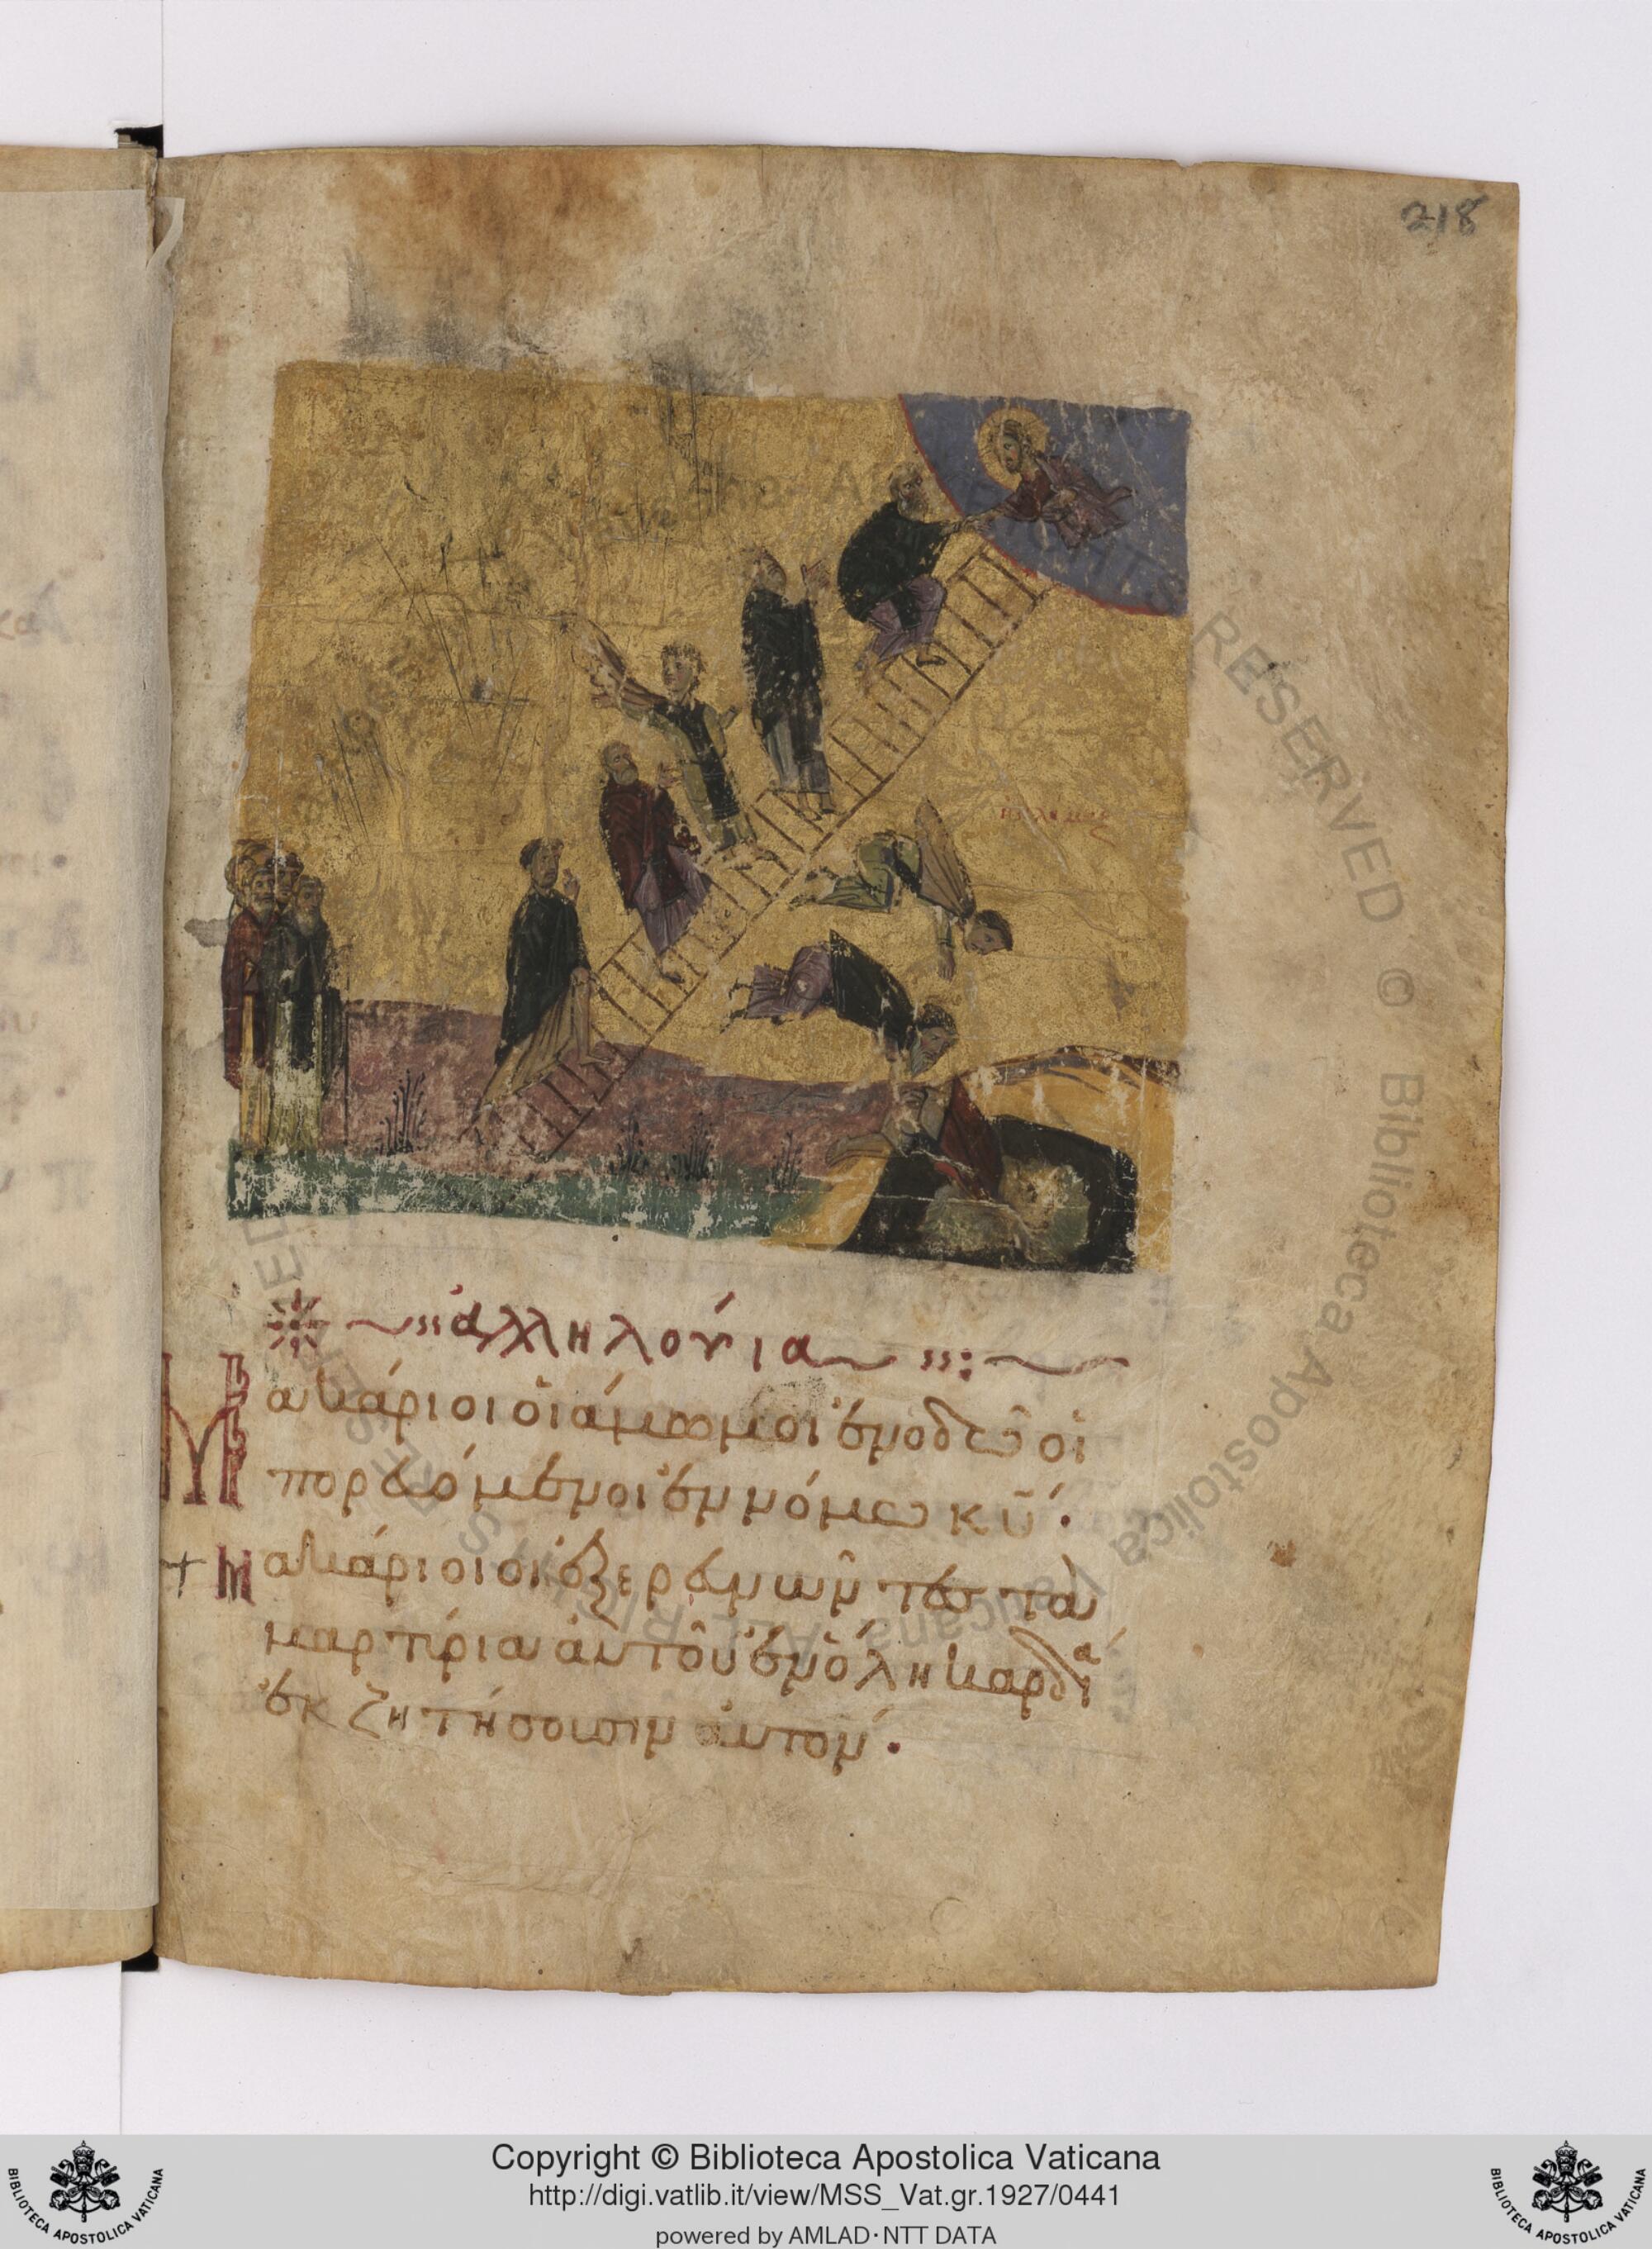 218
ἀλληλούια
Μακάριοι οἱ ἄμωμοι ἐν ὁδῶ οἱ
πορευόμενοι ἐν νόμω κ̅υ̅.
+ Μακάριοι οἱ ἐξερευνῶντες τὰ
μαρτύρια ἀυτοῦ ἐν ὅλη καρδία
ἐκζητήσουσιν ἀυτόν.
Copyright © Biblioteca Apostolica Vaticana
http://digi.vatlib.it/view/MSS_Vat.gr.1927/0441
powered by AMLAD·NTT DATA
BIBLIOTECA APOSTOLICA VATICANA
BIBLIOTECA APOSTOLICA VATICANA